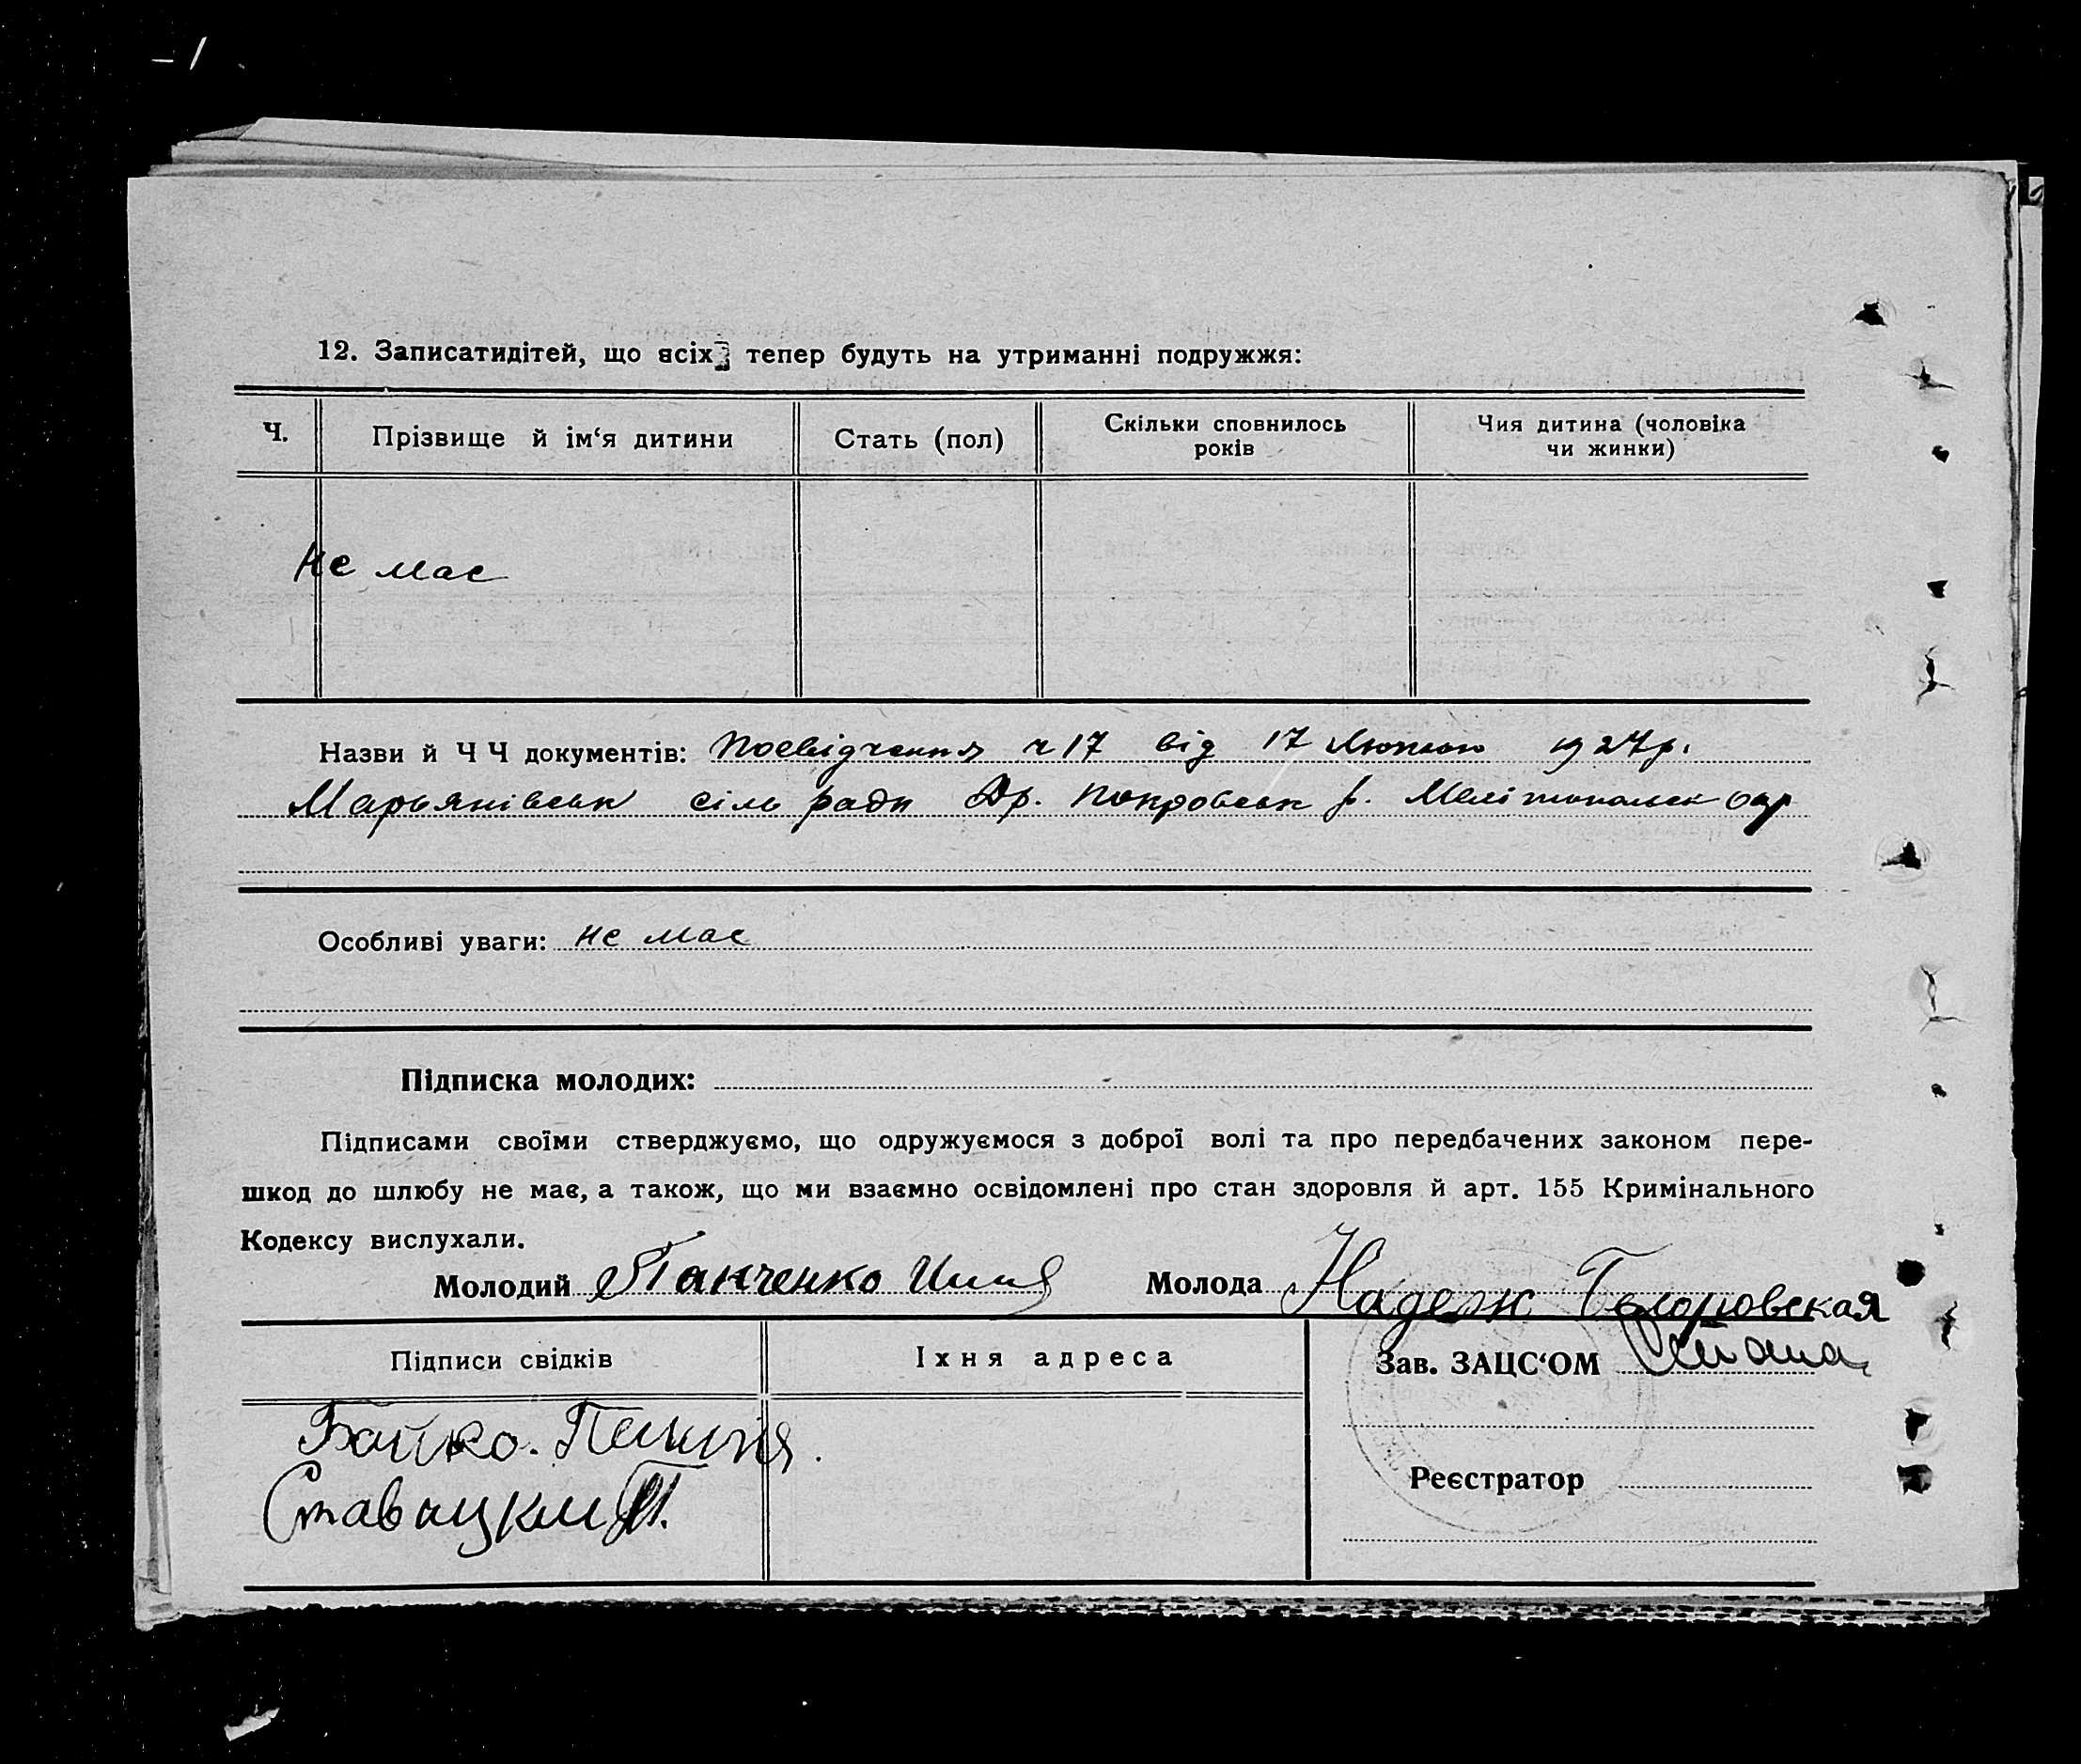 12. Записатидітей, що всіх тепер будуть на утриманні подружжя:
Ч.
Прізвище й ім‘я дитини
Стать (пол)
Скільки сповнилось
років
Чия дитина (чоловіка
чи жинки)
Не має
Назви й Ч Ч документів: Посвідчення ч 17 від 17 Лютого 1927 р.
Мар'янівськ сіль ради Др. Покровськ р. Мелітопольск окр
Особливі уваги: не має
Підписка молодих:
Підписами своїми стверджуємо, що одружуємося з доброї волі та про передбачених законом пере-
шкод до шлюбу не має, а також, що ми взаємно освідомлені про стан здоровля й арт. 155 Кримінального
Кодексу вислухали.
Молодий Панченко Илия Молода Надеж
Підписи свідків
Їхня адреса
Зав. ЗАЦС‘ОМ
Бойко.
Ставицкий
Реєстратор